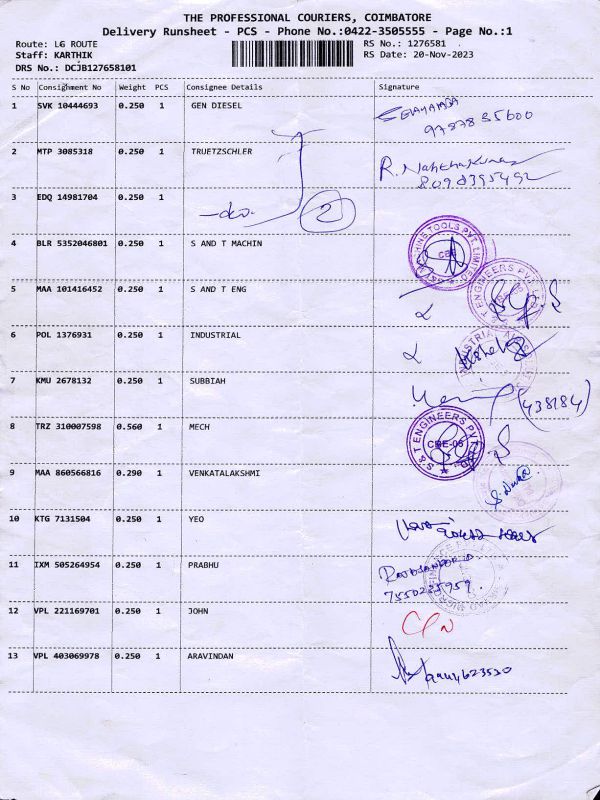 THE PROFESSIONAL COURIERS, COIMBATORE
Delivery Runsheet - PCS - Phone No.:0422-3505555 - Page No.:1
Route: LG ROUTE
RS No.: 1276581
Staff: KARTHIK
RS Date: 20-Nov-2023
DRS No.: DCJB127658101
S No Consignment No Weight PCS Consignee Details Signature
1 SVK 10444693 0.250 1 GEN DIESEL
2 MTP 3085318 0.250 1 TRUETZSCHLER
R. 
3 EDQ 14981704 0.250 1
-do- 2
4 BLR 5352046801 0.250 1 S AND T MACHIN
5 MAA 101416452 0.250 1 S AND T ENG
6 POL 1376931 0.250 1 INDUSTRIAL
7 KMU 2678132 0.250 1 SUBBIAH
(438184)
8 TRZ 310007598 0.560 1 MECH
S & T ENGINEERS PVT
CBE-05
9 MAA 860566816 0.290 1 VENKATALAKSHMI
10 KTG 7131504 0.250 1 YEO
11 IXM 505264954 0.250 1 PRABHU
7550235959
12 VPL 221169701 0.250 1 JOHN
13 VPL 403069978 0.250 1 ARAVINDAN